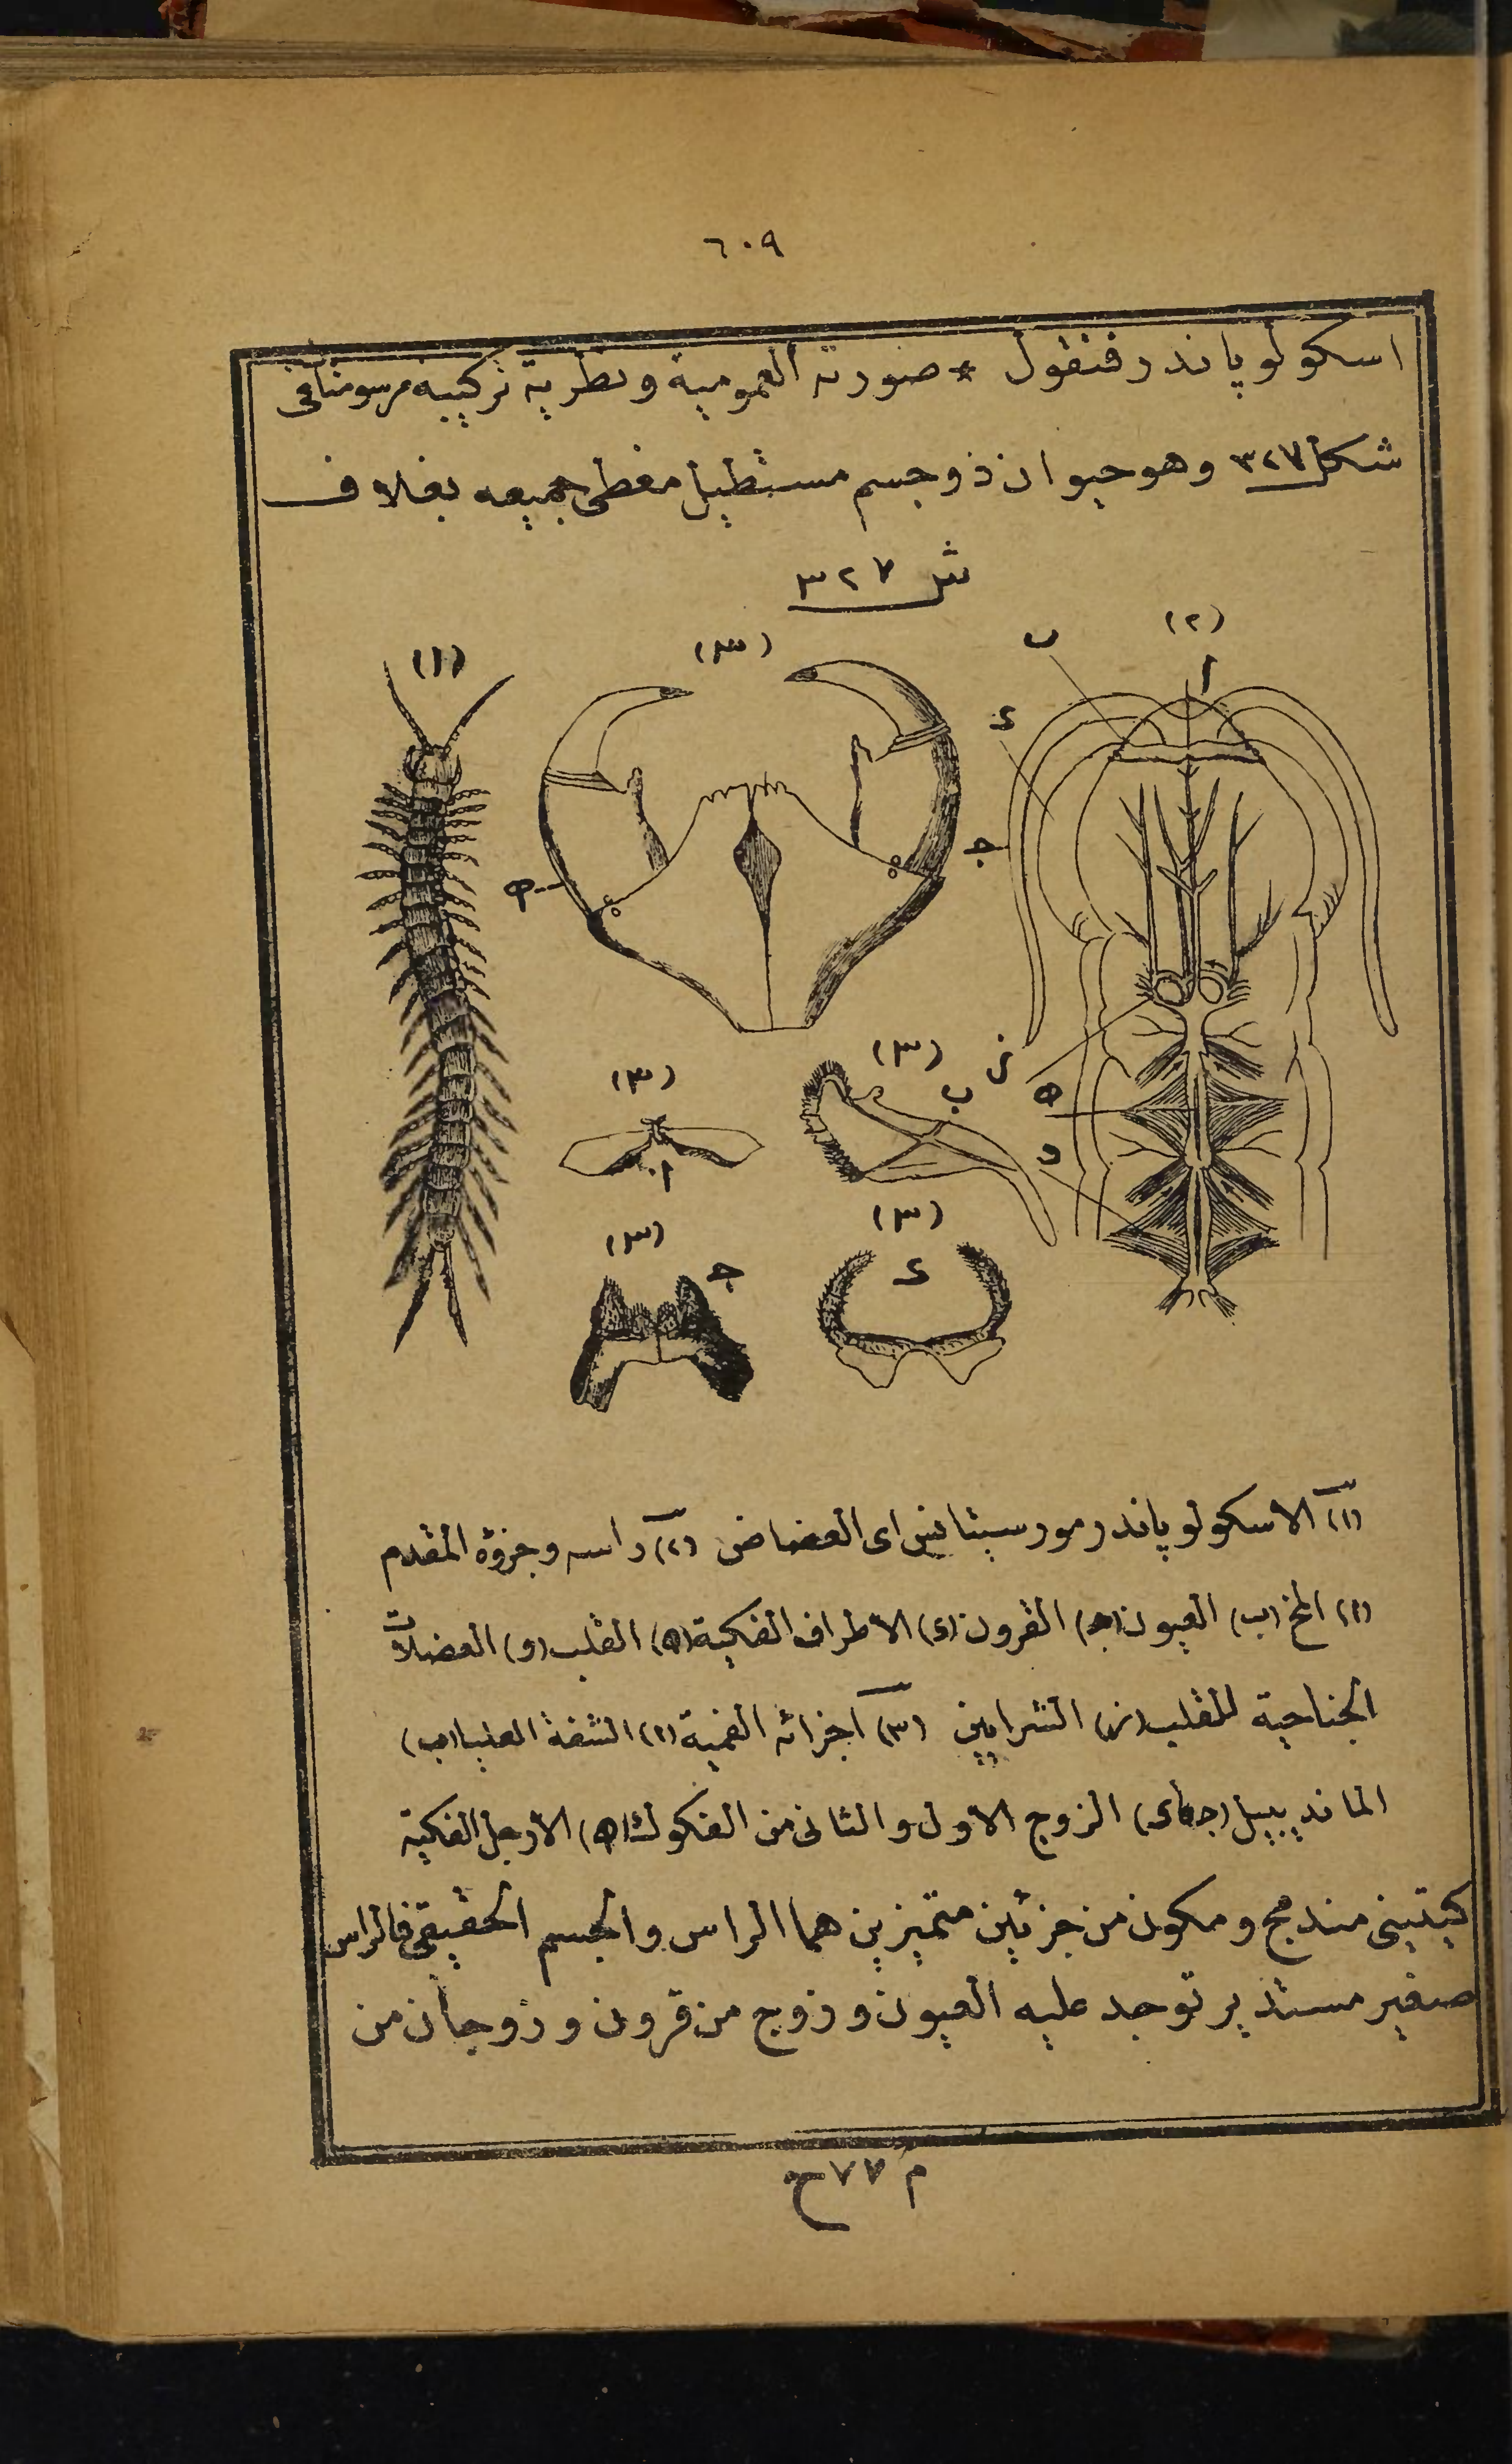 ٦٠٩
اسكولوپاندر فنقول * صورته العمومية ونظرية تركيبه مرسومتا في
شكل ٣٢٧ وهو حيوان ذو جسم مستطيل مغطى جميعه بغلاف
شـ ٣٢٧
(١) (٣) (٢)
ب ا
ء
جـ
هـ
(٣) (٣) ب ز
هـ
ا و
(٣) جـ (٣) ء
(١) الاسكولوپاندر مورسيتانس اى العضاض (٢) راسه وجزؤه المقدم
(ا) المخ (ب) العيون (جـ) القرون (ء) الاطراف الفكية (هـ) القلب (و) العضلات
الجناحية للقلب (ز) الشرايين (٣) اجزائه الفمية (ا) الشفة العليا (ب)
المانديبيل (جـ و ء) الزوج الاول والثانى من الفكوك (هـ) الارجل الفكية
كيتينى مندمج ومكون من جزئين متميزين هما الراس والجسم الحقيقى فالراس
صغير مستدير توجد عليه العيون وزوج من قرون وزوجان من
م ٧٧ ح